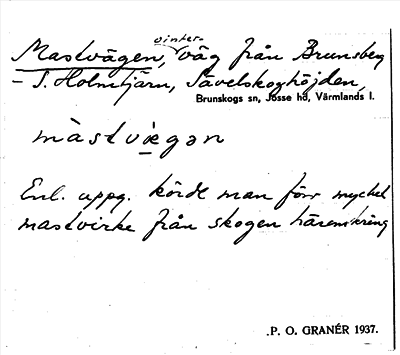 Mastvägen, vinterväg från Brunsberg
– S. Holmtjärn, Sävelskoghöjden,
Brunskogs sn, Jösse hd, Värmlands l.
màstvæ̀gən
Enl. uppg. körde man förr mycket
mastvirke från skogen häromkring
P. O. GRANÉR 1937.